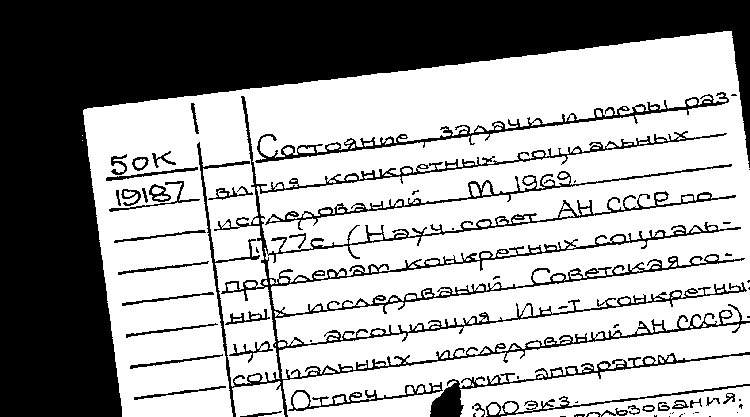 Состояние, задачи и меры раз-
50К
19187 вития конкретных социальных
исследований. М., 1969.
77с. (Науч. совет АН СССР по
проблемам конкретных социаль-
ных исследований. Советская со-
циол. ассоциация. Ин-т конкретных
социальных исследований АН СССР).
Отпеч. множит. аппаратом.
300 экз.